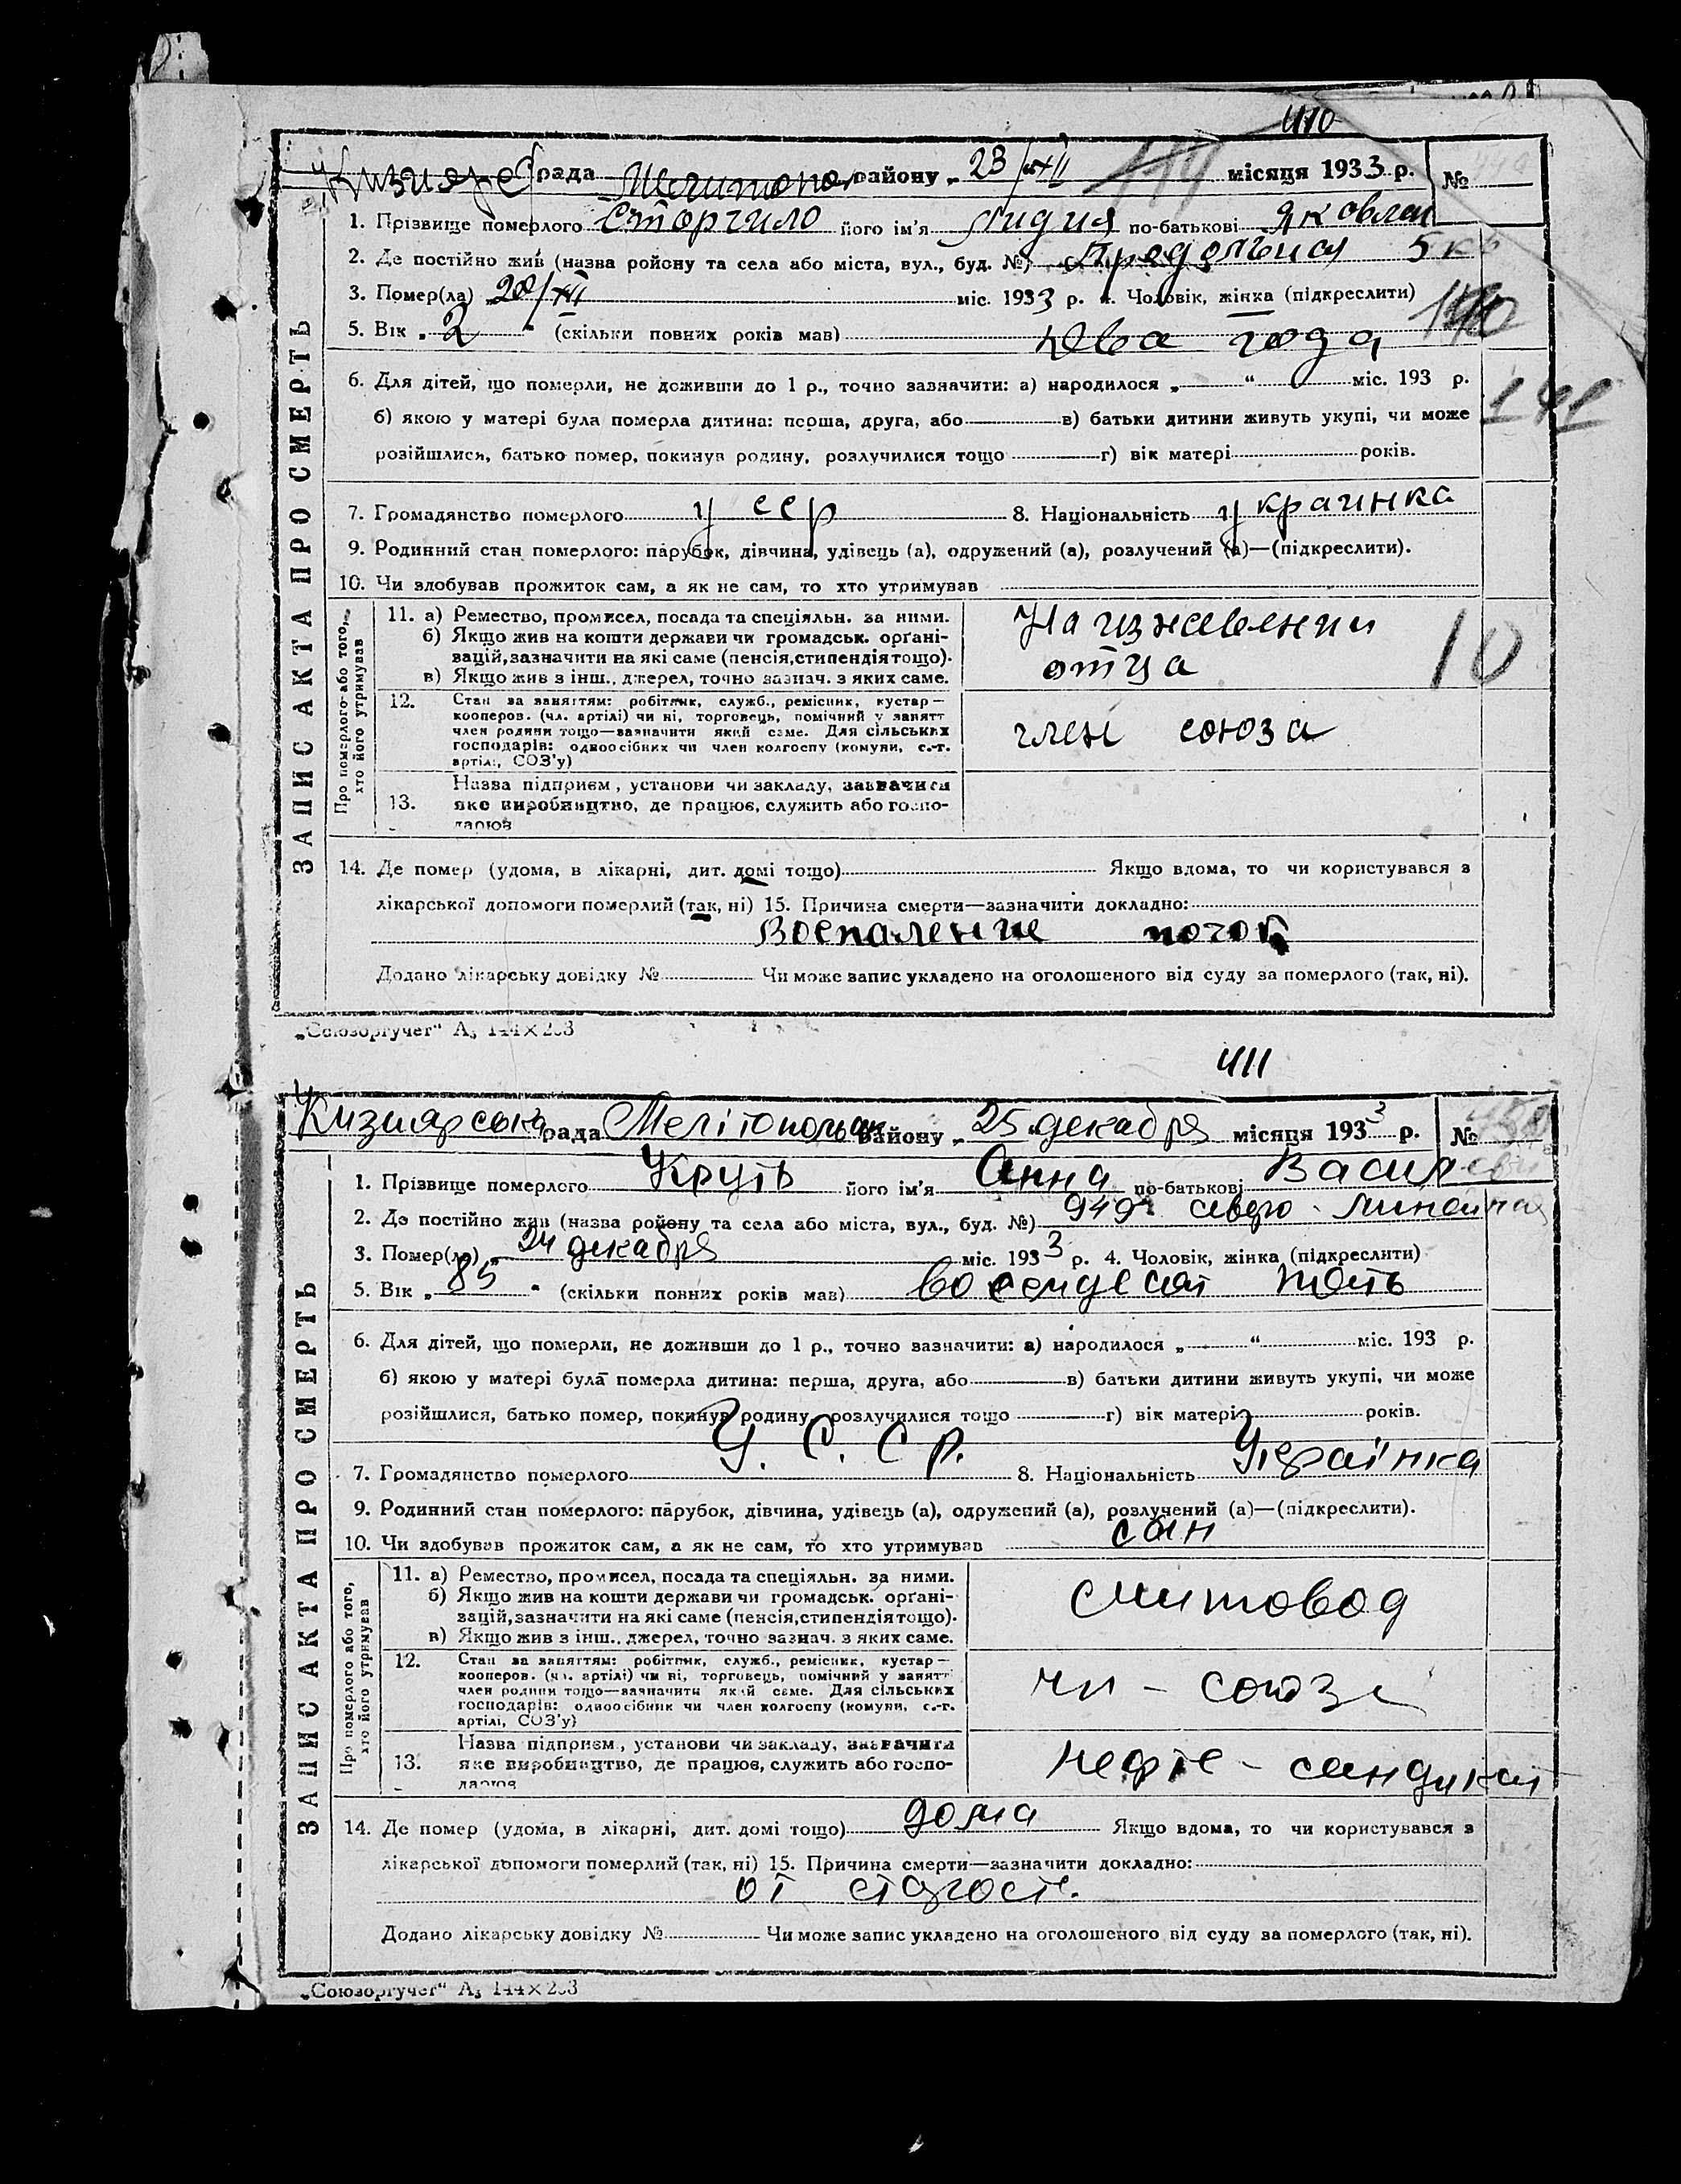 410
Кизиярс рада Мелитопол району „ 23/XII місяця 1933 р. №
1. Прізвище померлого Сторчило його ім'я Лидия по-батькові Яковлев
2. Де постійно жив (назва ройону та села або міста, вул., буд. №) Продольная 5 кв
3. Помер(ла) „ 20/XII міс. 1933 р. 4. Чоловік, жінка (підкреслити)
5. Вік „ 2 " (скільки повних років мав) Два года
6. Для дітей, що померли, не доживши до 1 р., точно зазначити: а) народилося „ “ міс. 193 р.
141
б) якою у матері була померла дитина: перша, друга, або в) батьки дитини живуть укупі, чи може
розійшлися, батько помер, покинув родину, розлучилися тощо г) вік матері років.
7. Громадянство померлого УССР 8. Національність украинка
9. Родинний стан померлого: парубок, дівчина, удівець (а), одружений (а), розлучений (а)—(підкреслити).
10. Чи здобував прожиток сам, а як не сам, то хто утримував
ЗАПИС АКТА ПРО СМЕРТЬ
Про померлого або того, хто його утримував
11. а) Ремество, промисел, посада та спеціяльн. за ними.
б) Якщо жив на кошти держави чи громадськ. органі-
зацій, зазначити на які саме (пенсія, стипендія тощо).
в) Якщо жив з інш., джерел, точно зазнач. з яких саме.
На иждевении
отца
10
12. Стан за заняттям: робітник, служб., ремісник, кустар—
кооперов. (чл. артілі) чи ні, торговець, помічний у занятт
член родини тощо—зазначити який саме. Для сільських
господарів: одноосібник чи член колгоспу (комуни, с.-г.
артілі, СОЗ'у)
член союза
13. Назва підприєм, установи чи закладу, зазначити
яке виробництво, де працює, служить або госпо-
дарює
14. Де помер (удома, в лікарні, дит. домі тощо) Якщо вдома, то чи користувався з
лікарської допомоги померлий (так, ні) 15. Причина смерти—зазначити докладно:
Воспаление почок
Додано лікарську довідку № Чи може запис укладено на оголошеного від суду за померлого (так, ні).
„Союзоргучет“ А₅ 144×203
411
Кизиярська рада Мелітопольск району „ 25 декабря місяця 1933 р. №
1. Прізвище померлого Круть його ім'я Анна по-батькові Василев
2. Де постійно жив (назва ройону та села або міста, вул., буд. №) 949 северо-Линейная
3. Помер(ла) „ 24 декабря міс. 1933 р. 4. Чоловік, жінка (підкреслити)
5. Вік „ 85 " (скільки повних років мав) восемдесят пять
6. Для дітей, що померли, не доживши до 1 р., точно зазначити: а) народилося „ “ міс. 193 р.
б) якою у матері була померла дитина: перша, друга, або в) батьки дитини живуть укупі, чи може
розійшлися, батько помер, покинув родину, розлучилися тощо г) вік матері років.
7. Громадянство померлого У.С.С.Р. 8. Національність Українка
9. Родинний стан померлого: парубок, дівчина, удівець (а), одружений (а), розлучений (а)—(підкреслити).
10. Чи здобував прожиток сам, а як не сам, то хто утримував сын
ЗАПИС АКТА ПРО СМЕРТЬ
Про померлого або того, хто його утримував
11. а) Ремество, промисел, посада та спеціяльн. за ними.
б) Якщо жив на кошти держави чи громадськ. органі-
зацій, зазначити на які саме (пенсія, стипендія тощо).
в) Якщо жив з інш., джерел, точно зазнач. з яких саме.
12. Стан за заняттям: робітник, служб., ремісник, кустар—
кооперов. (чл. артілі) чи ні, торговець, помічний у занятт
член родини тощо—зазначити який саме. Для сільських
господарів: одноосібник чи член колгоспу (комуни, с.-г.
артілі, СОЗ'у)
чл - союза
13. Назва підприєм, установи чи закладу, зазначити
яке виробництво, де працює, служить або госпо-
дарює
Нефте - синдикат
14. Де помер (удома, в лікарні, дит. домі тощо) дома Якщо вдома, то чи користувався з
лікарської допомоги померлий (так, ні) 15. Причина смерти—зазначити докладно:
от старости.
Додано лікарську довідку № Чи може запис укладено на оголошеного від суду за померлого (так, ні).
„Союзоргучет“ А₅ 144×203